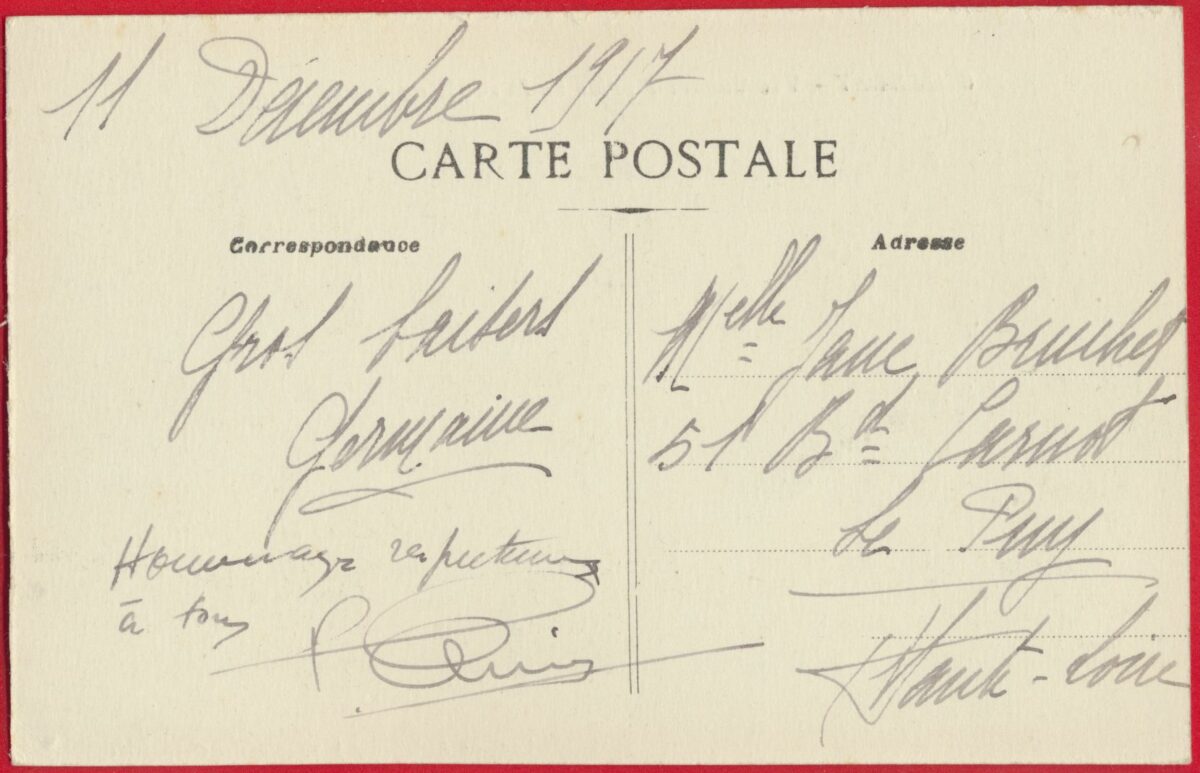 11 Décembre 1917
CARTE POSTALE
Correspondance
Gros baisers
Germaine
Hommage respectueux
à tous
Adresse
Melle Jane Bruchet
51 Bd Carnot
Le Puy
Haute-Loire